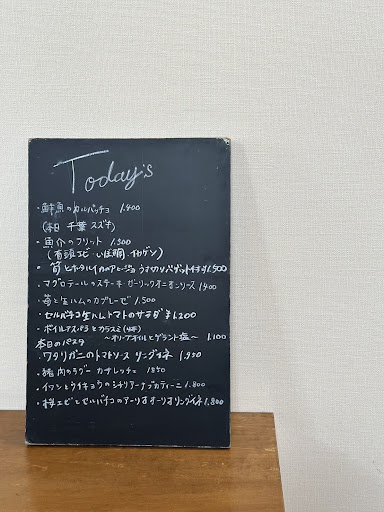 Today's
・鮮魚のカルパッチョ 1.400
(本日 千葉 スズキ)
・魚介のフリット 1.300
(有頭エビ・いぼ鯛・
・筍とホタルイカのアヒージョ うす切りバゲット付き 1,500
・マグロテールのステーキ ガーリックオニオンソース 1400
・苺と生ハムのカプレーゼ 1.500
・セルバチコ生ハムトマトのサラダ ¥1,200
・ボイルアスパラとカラスミ
〜オリーブオイルとゲランド塩〜 1.100
本日のパスタ
・ワタリガニのトマトソース リングイネ 1.950
・猪肉のラグー カサレッチェ 1850
・イワシとウイキョウのシチリアーナ ブカティーニ 1.800
・桜エビとセルバチコのアーリオオーリオ リングイネ 1,800